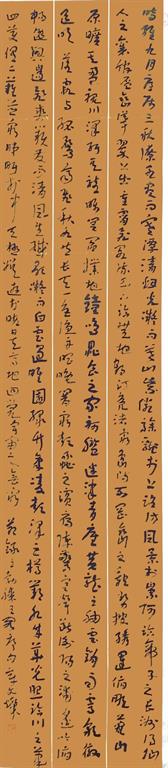 時維九月序屬三秋潦水盡而寒潭清煙光凝而暮山紫儼驂騑於上路訪風景於崇阿臨帝子之長洲得仙
人之舊館層巒聳翠上出重霄飛閣流丹下臨無地鶴汀鳧渚窮島嶼之縈迴桂殿蘭宮即岡巒之體勢披繡闥俯雕甍山
原曠其盈視川澤紆其駭矚閭閻撲地鐘鳴鼎食之家舸艦迷津青雀黃龍之舳雲銷雨霽彩徹
區明落霞與孤鶩齊飛秋水共長天一色漁舟唱晚響窮彭蠡之濱雁陣驚寒聲斷衡陽之浦遙吟俯
暢逸興遄飛爽籟發而清風生纖歌凝而白雲遏睢園綠竹氣凌彭澤之樽鄴水朱華光照臨川之筆
四美具二難並窮睇眄於中天極娛遊於暇日天高地迥覺宇宙之無窮